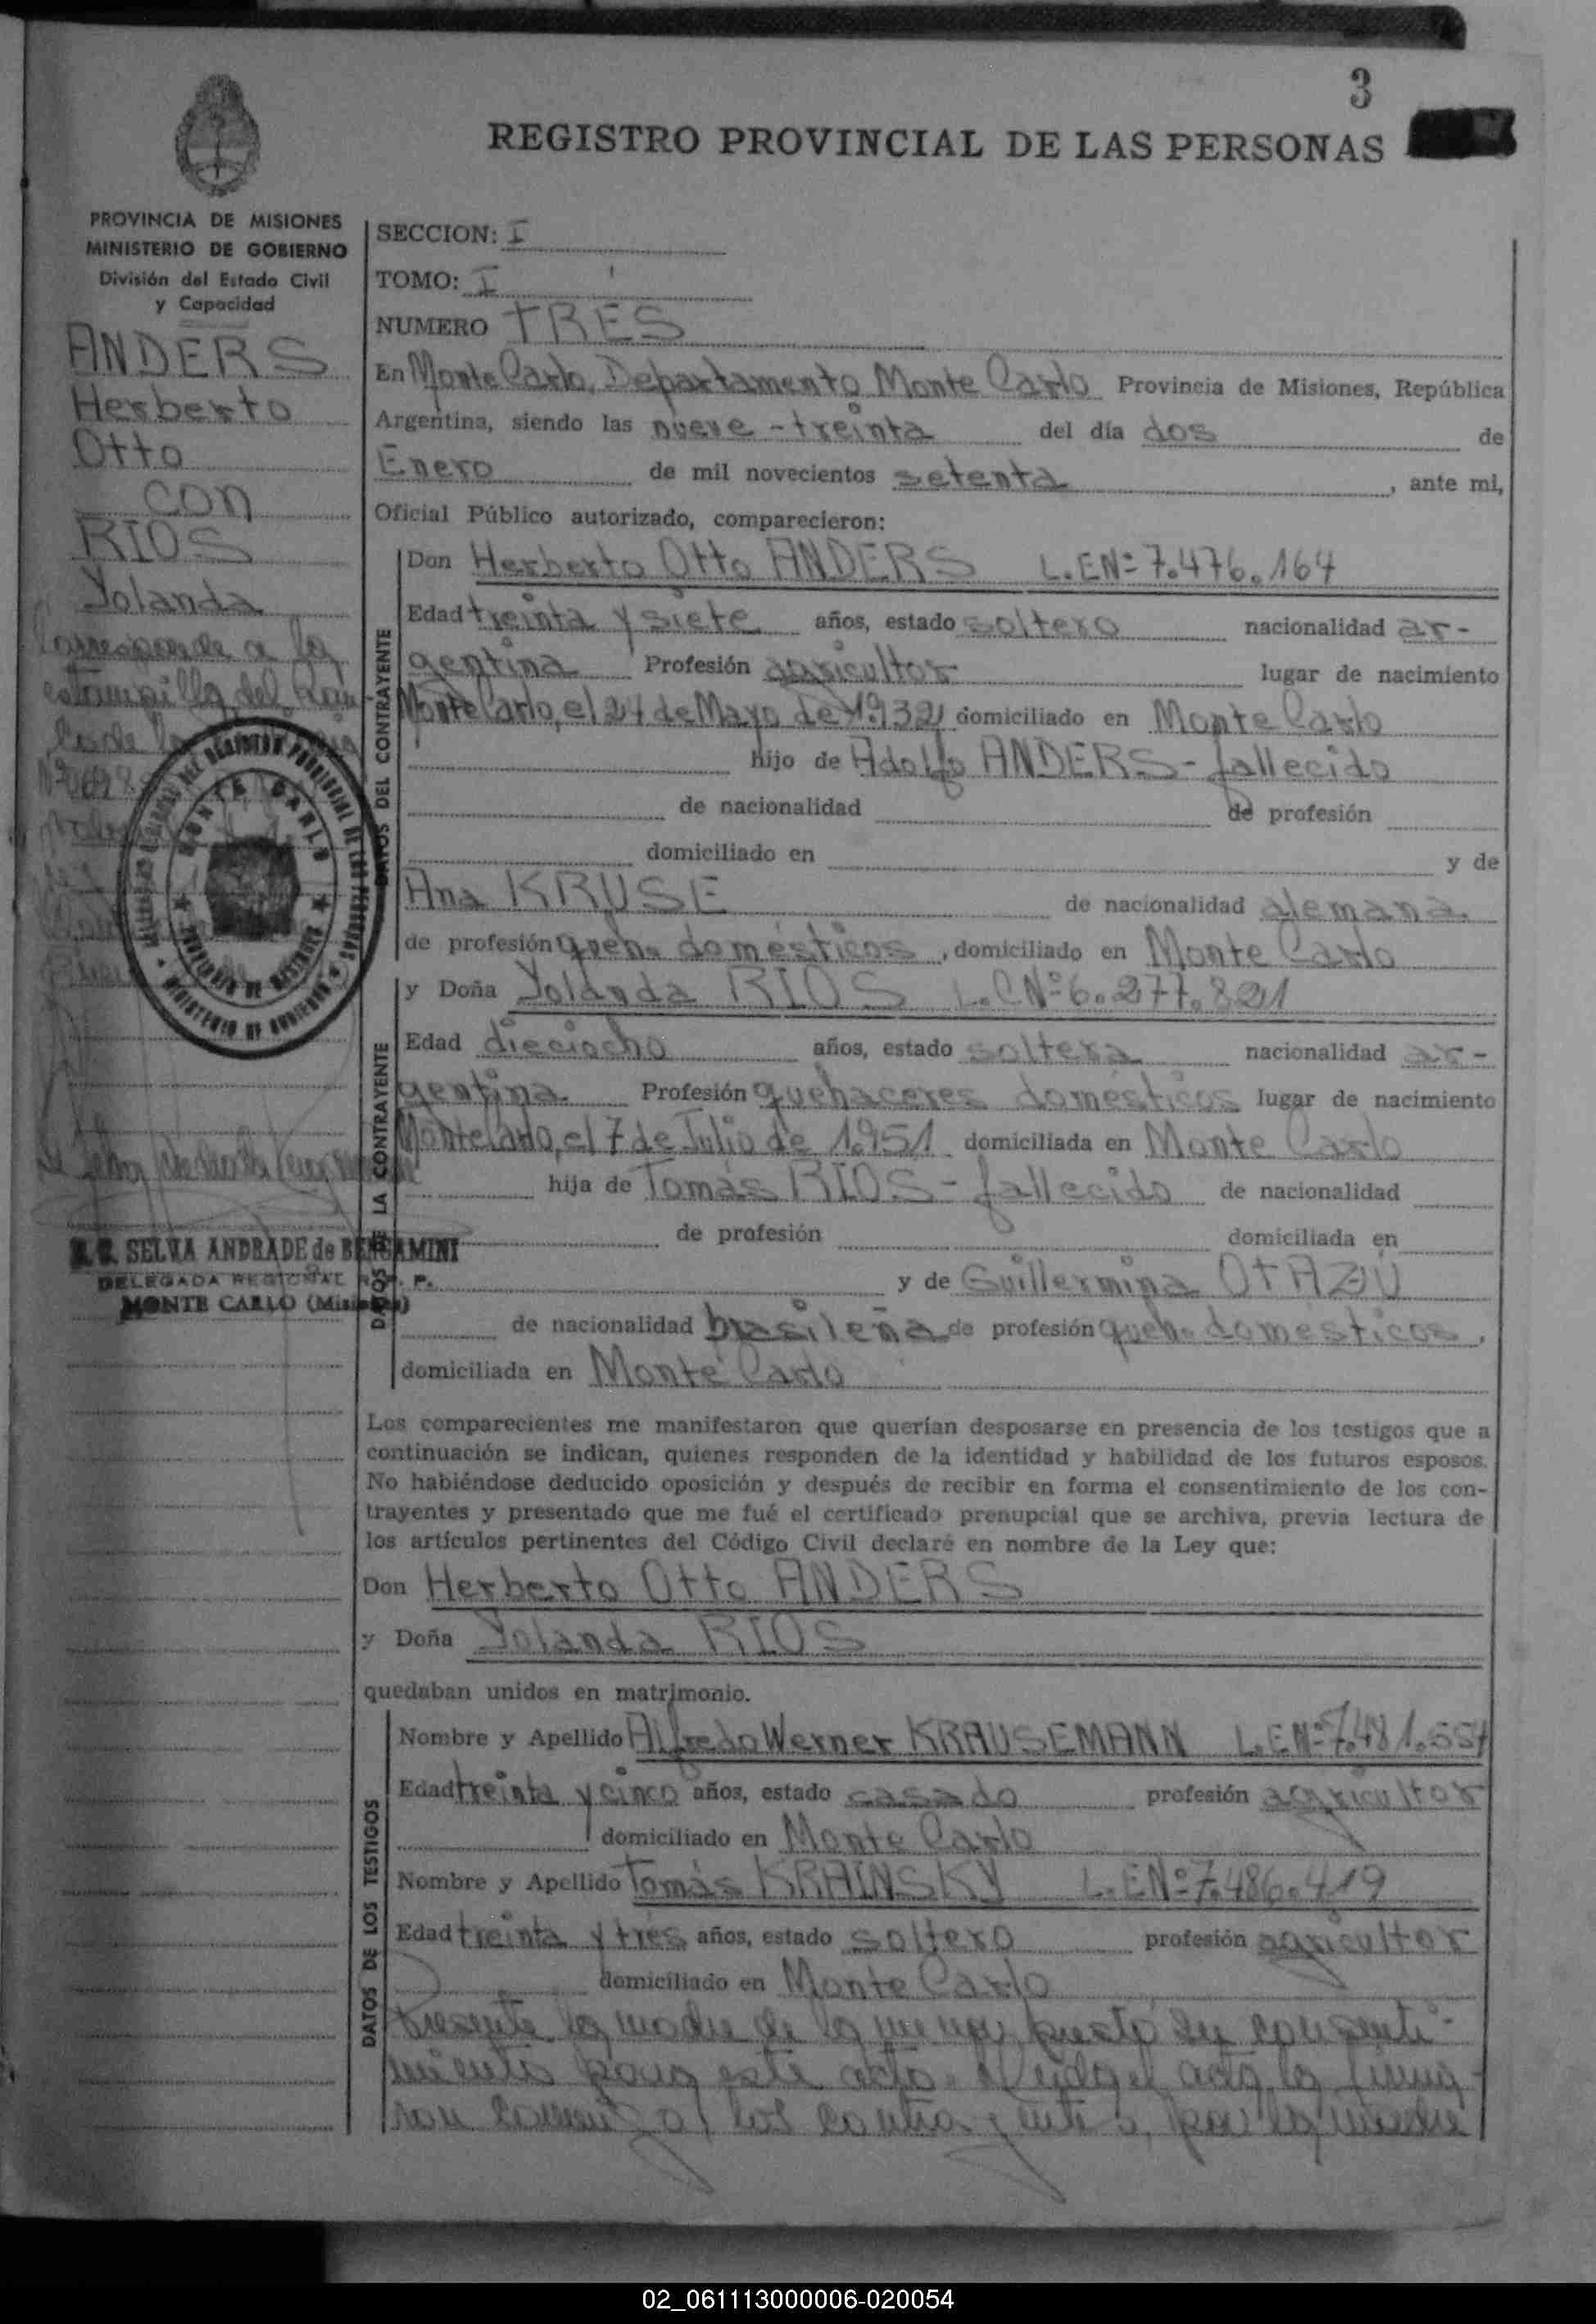 3
REGISTRO PROVINCIAL DE LAS PERSONAS
PROVINCIA DE MISIONES
MINISTERIO DE GOBIERNO
División del Estado Civil
y Capacidad
ANDERS
Herberto
Otto
con
RIOS
Yolanda
Corresponde a la
estampilla del
MONTE CARLO
PROVINCIA DE MISIONES
MINISTERIO DE GOBIERNO
SELVA ANDRADE de BERGAMINI
DELEGADA REGIONAL R. P. P.
MONTE CARLO (Misiones)
SECCION: I
TOMO: I
NUMERO TRES
En Monte Carlo, Departamento Monte Carlo Provincia de Misiones, República
Argentina, siendo las nueve-treinta del día dos de
Enero de mil novecientos setenta, ante mi,
Oficial Público autorizado, comparecieron:
DATOS DEL CONTRAYENTE
Don Herberto Otto ANDERS L.E.Nº 7.476.164
Edad treinta y siete años, estado soltero nacionalidad ar-
gentina Profesión agricultor lugar de nacimiento
Monte Carlo, el 24 de Mayo de 1.932 domiciliado en Monte Carlo
hijo de Adolfo ANDERS - fallecido
de nacionalidad de profesión
domiciliado en y de
Ana KRUSE de nacionalidad alemana
de profesión queh. domésticos, domiciliado en Monte Carlo
DATOS DE LA CONTRAYENTE
y Doña Yolanda RIOS L.C.Nº 6.277.821
Edad dieciocho años, estado soltera nacionalidad ar-
gentina Profesión quehaceres domésticos lugar de nacimiento
Monte Carlo, el 7 de Julio de 1.951 domiciliada en Monte Carlo
hija de Tomás RIOS - fallecido de nacionalidad
de profesión domiciliada en
y de Guillermina OTAZU
de nacionalidad brasileña de profesión queh. domésticos,
domiciliada en Monte Carlo
Los comparecientes me manifestaron que querían desposarse en presencia de los testigos que a
continuación se indican, quienes responden de la identidad y habilidad de los futuros esposos.
No habiéndose deducido oposición y después de recibir en forma el consentimiento de los con-
trayentes y presentado que me fué el certificado prenupcial que se archiva, previa lectura de
los artículos pertinentes del Código Civil declaré en nombre de la Ley que:
Don Herberto Otto ANDERS
y Doña Yolanda RIOS
quedaban unidos en matrimonio.
DATOS DE LOS TESTIGOS
Nombre y Apellido Alfredo Werner KRAUSEMANN L.E.Nº 7.481.551
Edad treinta y cinco años, estado casado profesión agricultor
domiciliado en Monte Carlo
Nombre y Apellido Tomás KRAINSKY L.E.Nº 7.486.419
Edad treinta y tres años, estado soltero profesión agricultor
domiciliado en Monte Carlo
Presente la madre de la menor prestó su consenti-
miento para este acto. Leída el acta, la firma-
ron conmigo, los contrayentes, por la madre
02_061113000006-020054